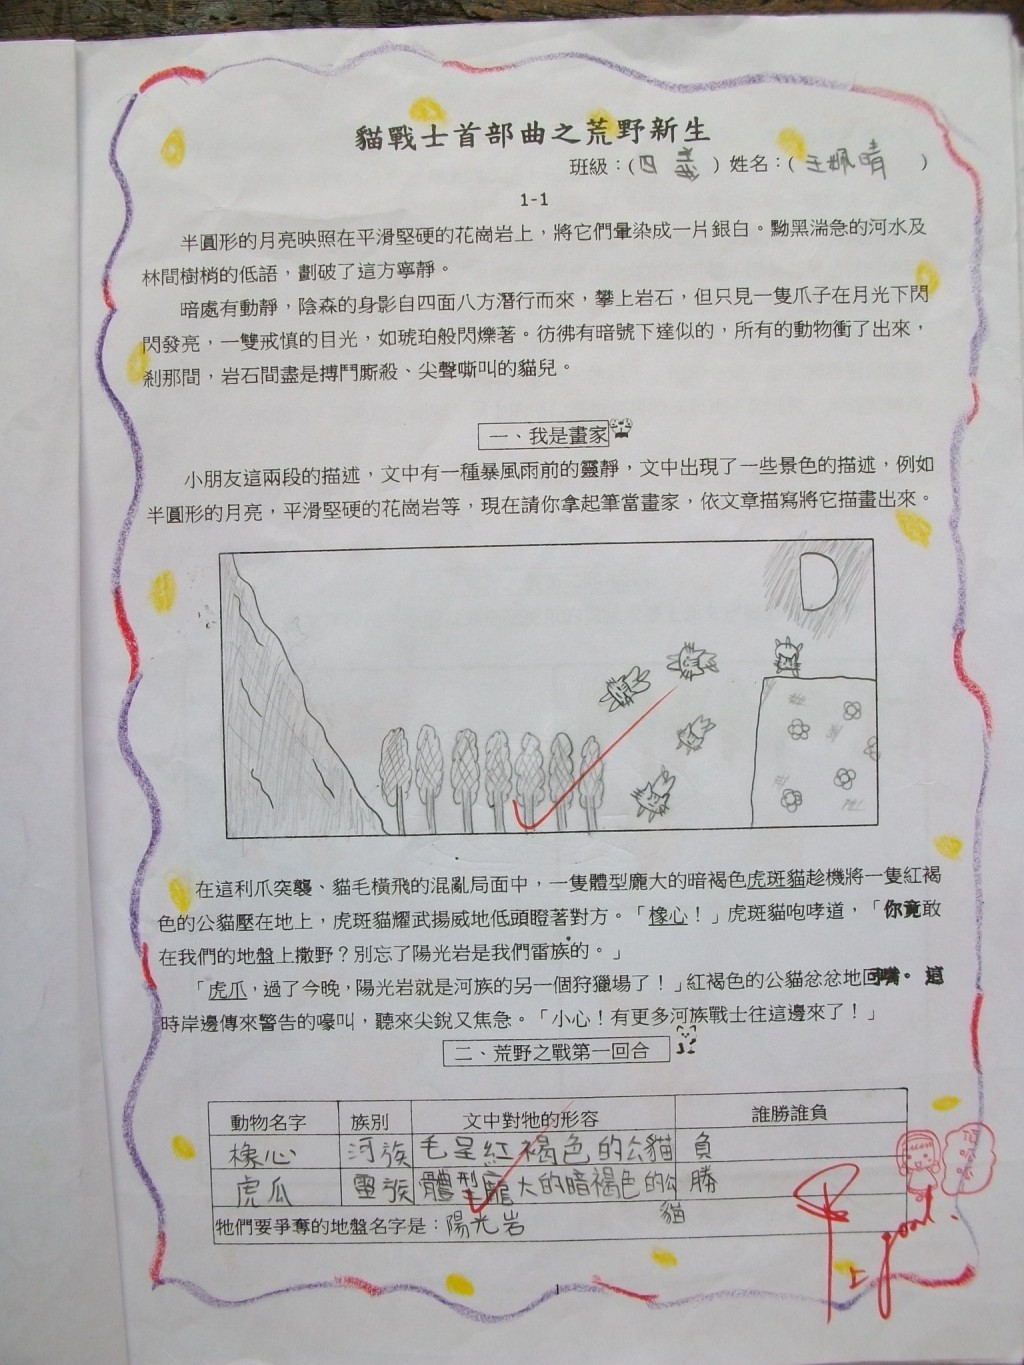 貓戰士首部曲之荒野新生
班級：（四 義 ）姓名：（ 王珮晴 ）
1-1
半圓形的月亮映照在平滑堅硬的花崗岩上，將它們暈染成一片銀白。黝黑湍急的河水及
林間樹梢的低語，劃破了這方寧靜。
暗處有動靜，陰森的身影自四面八方潛行而來，攀上岩石，但只見一隻爪子在月光下閃
閃發亮，一雙戒慎的目光，如琥珀般閃爍著。彷彿有暗號下達似的，所有的動物衝了出來，
剎那間，岩石間盡是搏鬥廝殺、尖聲嘶叫的貓兒。
一、我是畫家
小朋友這兩段的描述，文中有一種暴風雨前的靈靜，文中出現了一些景色的描述，例如
半圓形的月亮，平滑堅硬的花崗岩等，現在請你拿起筆當畫家，依文章描寫將它描畫出來。
在這利爪突襲、貓毛橫飛的混亂局面中，一隻體型龐大的暗褐色虎斑貓趁機將一隻紅褐
色的公貓壓在地上，虎斑貓耀武揚威地低頭瞪著對方。「橡心！」虎斑貓咆哮道，「你竟敢
在我們的地盤上撒野？別忘了陽光岩是我們雷族的。」
「虎爪，過了今晚，陽光岩就是河族的另一個狩獵場了！」紅褐色的公貓忿忿地回嘴。這
時岸邊傳來警告的嚎叫，聽來尖銳又焦急。「小心！有更多河族戰士往這邊來了！」
二、荒野之戰第一回合
動物名字 族別 文中對牠的形容 誰勝誰負
橡心 河族 毛呈紅褐色的公貓 負
虎瓜 雷族 體型龐大的暗褐色的公貓 勝
牠們要爭奪的地盤名字是：陽光岩
good.
1